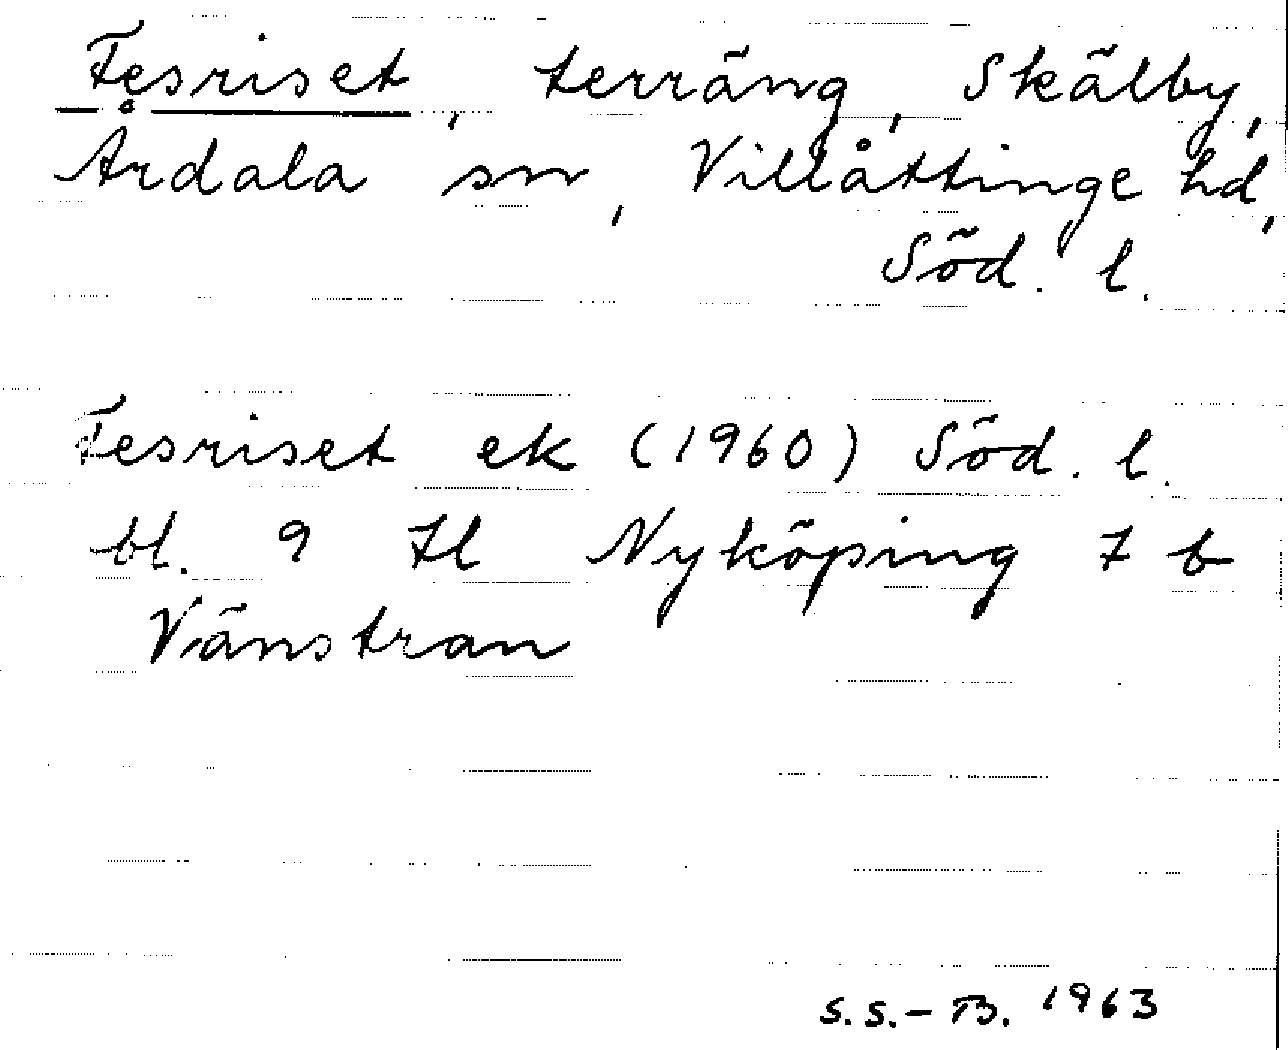 Fesriset, terräng, Skälby,
Årdala sn, Villåttinge hd,
Söd. l.
Fesriset ek (1960) Söd. l.
bl. 9 H l Nyköping 7 b
Vänstran
S.S.-B. 1963